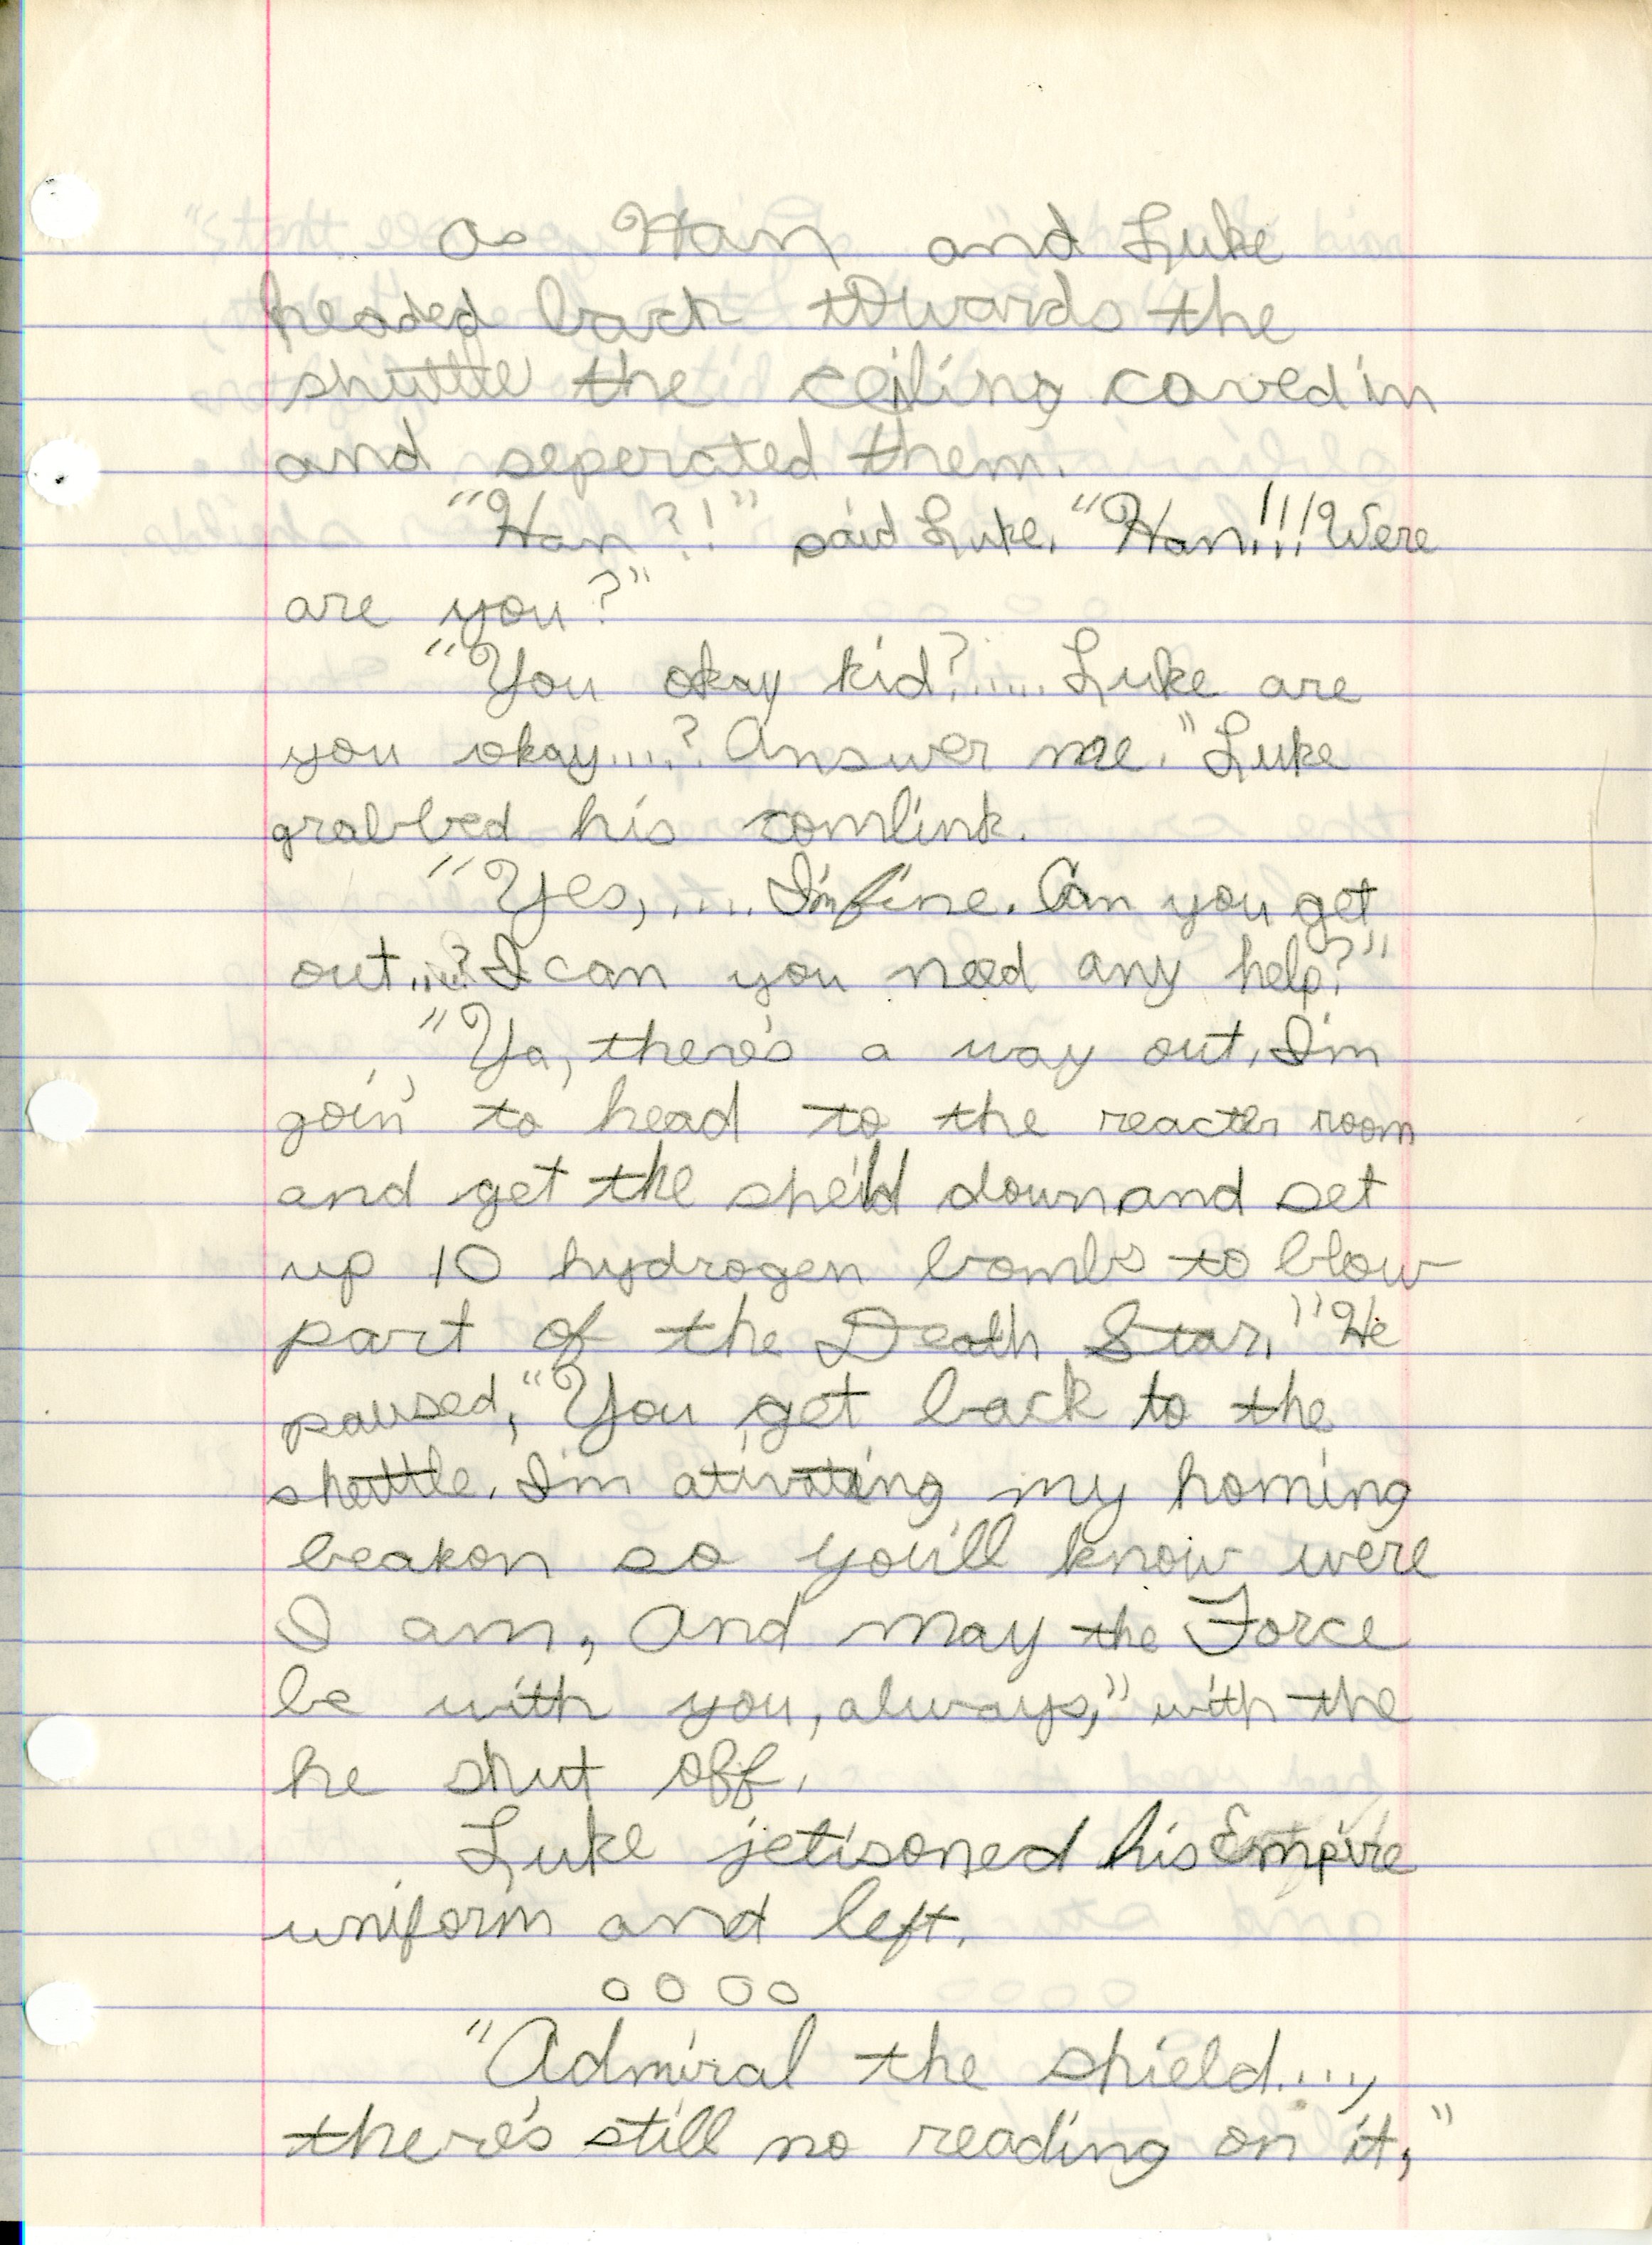 as Han and Luke
headed back towards the
shuttle the ceiling caved in
and seperated them.
"Han?!" said Luke. "Han!!! Were
are you?"
"You okay kid?..... Luke are
you okay....? Answer me." Luke
grabbed his comlink.
"Yes,.... I'm fine. Can you get
out...? I can you need any help?"
"Ya, there's a way out, I'm
goin' to head to the reacter room
and get the sheild down and set
up 10 hydrogen bombs to blow
part of the Death Star." He
paused, "You get back to the
shuttle. I'm ativating my homing
beakon so you'll know were
I am, And may the Force
be with you, always," with the
he shut off.
Luke jetisoned his Empire
uniform and left.
o o o o
"Admiral the shield....,
there's still no reading on it,"